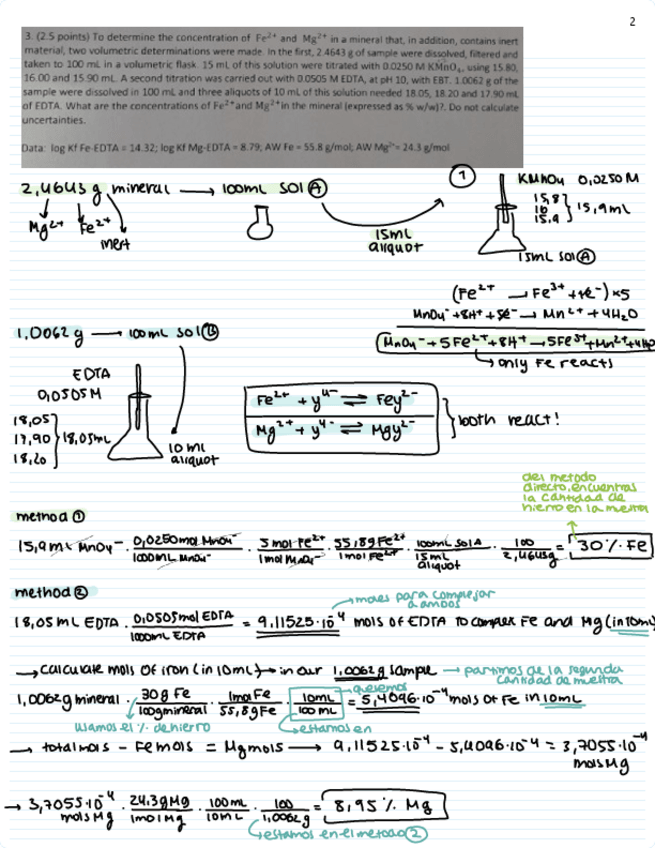 2
3. (2.5 points) To determine the concentration of Fe²⁺ and Mg²⁺ in a mineral that, in addition, contains inert
material, two volumetric determinations were made. In the first, 2.4643 g of sample were dissolved, filtered and
taken to 100 mL in a volumetric flask. 15 mL of this solution were titrated with 0.0250 M KMnO₄, using 15.80,
16.00 and 15.90 mL. A second titration was carried out with 0.0505 M EDTA, at pH 10, with EBT. 1.0062 g of the
sample were dissolved in 100 mL and three aliquots of 10 mL of this solution needed 18.05, 18.20 and 17.90 mL
of EDTA. What are the concentrations of Fe²⁺ and Mg²⁺ in the mineral (expressed as % w/w)?. Do not calculate
uncertainties.
Data: log Kf Fe-EDTA = 14.32; log Kf Mg-EDTA = 8.79; AW Fe = 55.8 g/mol; AW Mg²⁺ = 24.3 g/mol
2,4643 g mineral → 100mL sol A
Mg²⁺ Fe²⁺
inert
15mL
aliquot
1
KMnO4 0,0250 M
15,8
16
15,9
} 15,9mL
15mL sol A
(Fe²⁺ → Fe³⁺ + 1e⁻) x5
MnO4⁻ + 8H⁺ + 5e⁻ → Mn²⁺ + 4H2O
MnO4⁻ + 5Fe²⁺ + 8H⁺ → 5Fe³⁺ + Mn²⁺ + 4H2O
only Fe reacts
1,0062 g → 100mL sol B
EDTA
0,0505M
18,05
17,90
18,20
} 18,05mL
10 mL
aliquot
Fe²⁺ + y⁴⁻ ⇌ Fey²⁻
Mg²⁺ + y⁴⁻ ⇌ Mgy²⁻
} both react!
del metodo
directo, encuentras
la cantidad de
hierro en la muestra
method 1
15,9mL MnO4⁻ · 0,0250mol MnO4⁻ / 1000mL MnO4⁻ · 5mol Fe²⁺ / 1mol MnO4⁻ · 55,8g Fe²⁺ / 1mol Fe²⁺ · 100mL sol A / 15mL aliquot · 100 / 2,4643g = 30 % Fe
method 2
moles para complejar
a ambos
18,05 mL EDTA · 0,0505mol EDTA / 1000mL EDTA = 9,11525·10⁻⁴ mols of EDTA to complex Fe and Mg (in 10mL)
→ calculate mols of iron (in 10mL) → in our 1,0062 g sample → partimos de la segunda
cantidad de muestra
queremos
1,0062g mineral · 30 g Fe / 100g mineral · 1mol Fe / 55,8g Fe · 10mL / 100mL = 5,4096·10⁻⁴ mols of Fe in 10mL
usamos el % de hierro
estamos en
→ total mols - Fe mols = Mg mols → 9,11525·10⁻⁴ - 5,4096·10⁻⁴ = 3,7055·10⁻⁴
mols Mg
→ 3,7055·10⁻⁴ mols Mg · 24,3g Mg / 1mol Mg · 100mL / 10mL · 100 / 1,0062g = 8,95 % Mg
estamos en el metodo 2